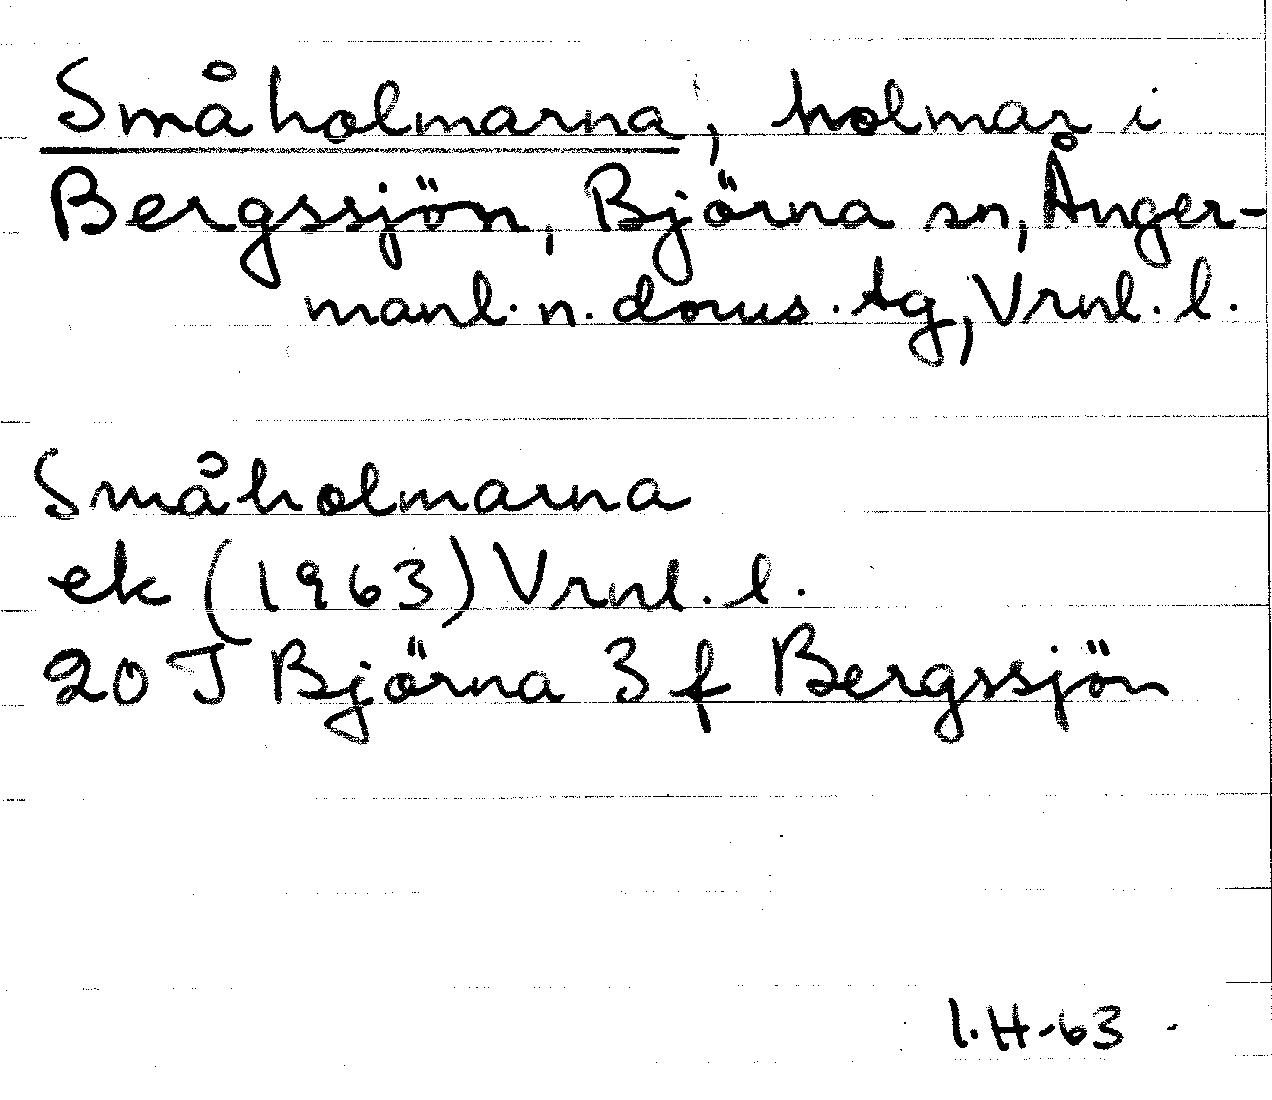 Småholmarna, holmar i
Bergssjön, Björna sn, Ånger-
manl. n. doms. tg, Vrnl. l.
Småholmarna
ek (1963) Vrnl. l.
20 J Björna 3 f Bergssjön
I.H-63